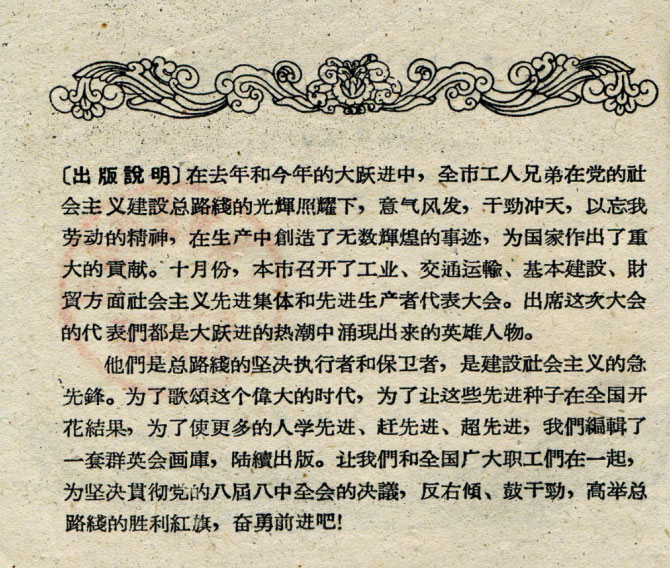 〔出版說明〕在去年和今年的大跃进中，全市工人兄弟在党的社
会主义建設总路綫的光輝照耀下，意气风发，干勁冲天，以忘我
劳动的精神，在生产中創造了无数輝煌的事迹，为国家作出了重
大的貢献。十月份，本市召开了工业、交通运輸、基本建設、財
貿方面社会主义先进集体和先进生产者代表大会。出席这次大会
的代表們都是大跃进的热潮中涌現出来的英雄人物。
他們是总路綫的坚决执行者和保卫者，是建設社会主义的急
先鋒。为了歌頌这个偉大的时代，为了让这些先进种子在全国开
花結果，为了使更多的人学先进、赶先进、超先进，我們編輯了
一套群英会画庫，陆續出版。让我們和全国广大职工們在一起，
为坚决貫彻党的八屆八中全会的决議，反右傾、鼓干勁，高举总
路綫的胜利紅旗，奋勇前进吧！